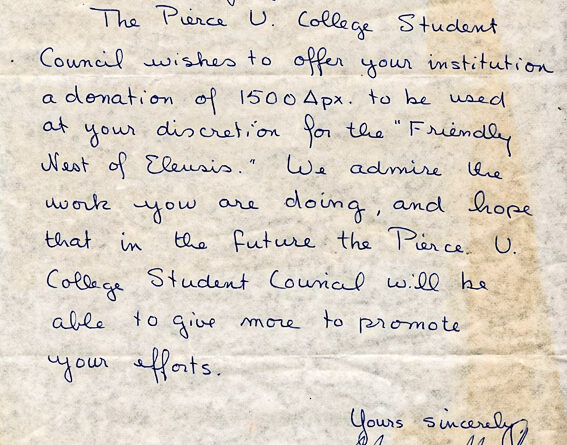 The Pierce U. College Student
Council wishes to offer your institution
a donation of 1500 Δρχ. to be used
at your discretion for the "Friendly
Nest of Eleusis." We admire the
work you are doing, and hope
that in the future the Pierce U.
College Student Council will be
able to give more to promote
your efforts.
Yours sincerely,